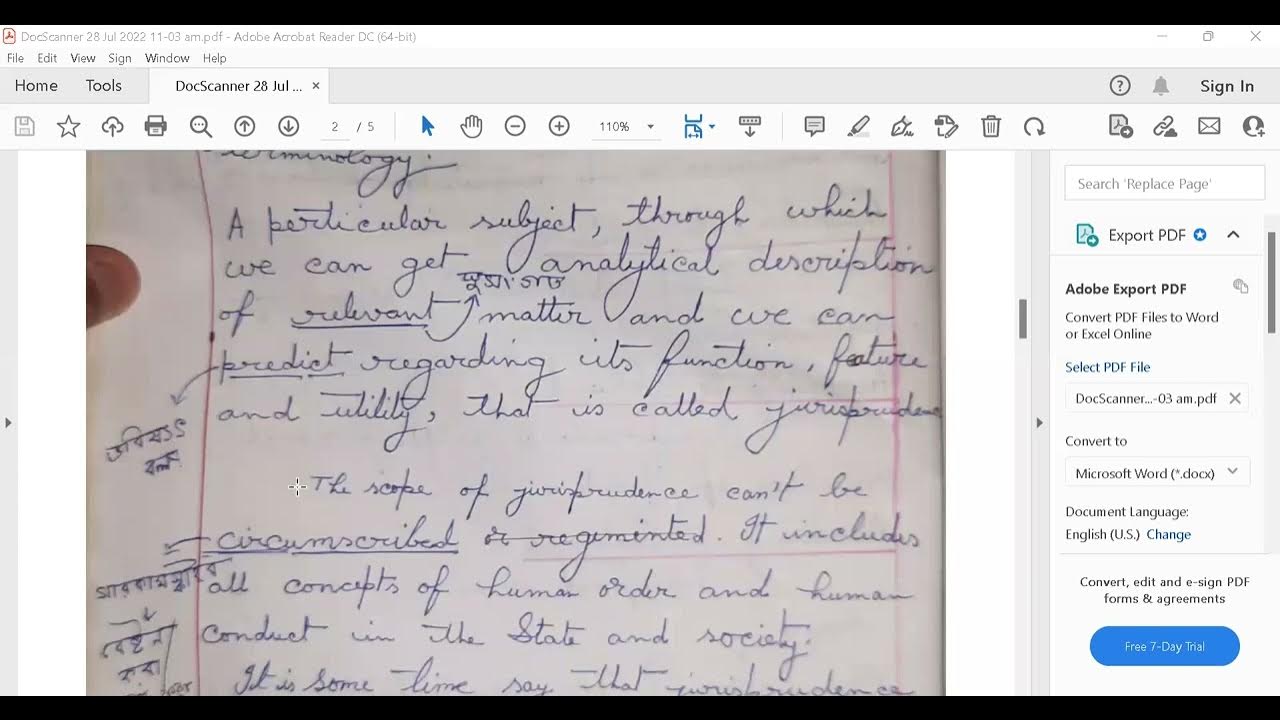 DocScanner 28 Jul 2022 11-03 am.pdf - Adobe Acrobat Reader DC (64-bit)
File Edit View Sign Window Help
Home Tools DocScanner 28 Jul ... × Sign In
2 / 5 110%
terminology.
A perticular subject, through which
we can get analytical description
of relevant matter and we can
predict regarding its function, feature
and utility, that is called jurisprudenc
ভবিষ্যৎ
The scope of jurisprudence can't be
circumscribed or regiminted. It includes
all concepts of human order and human
conduct in the State and society.
বেষ্টন
করা
It is some time say that jurisprudence
Search 'Replace Page'
Export PDF
Adobe Export PDF
Convert PDF Files to Word
or Excel Online
Select PDF File
DocScanner...-03 am.pdf ×
Convert to
Microsoft Word (*.docx)
Document Language:
English (U.S.) Change
Convert, edit and e-sign PDF
forms & agreements
Free 7-Day Trial